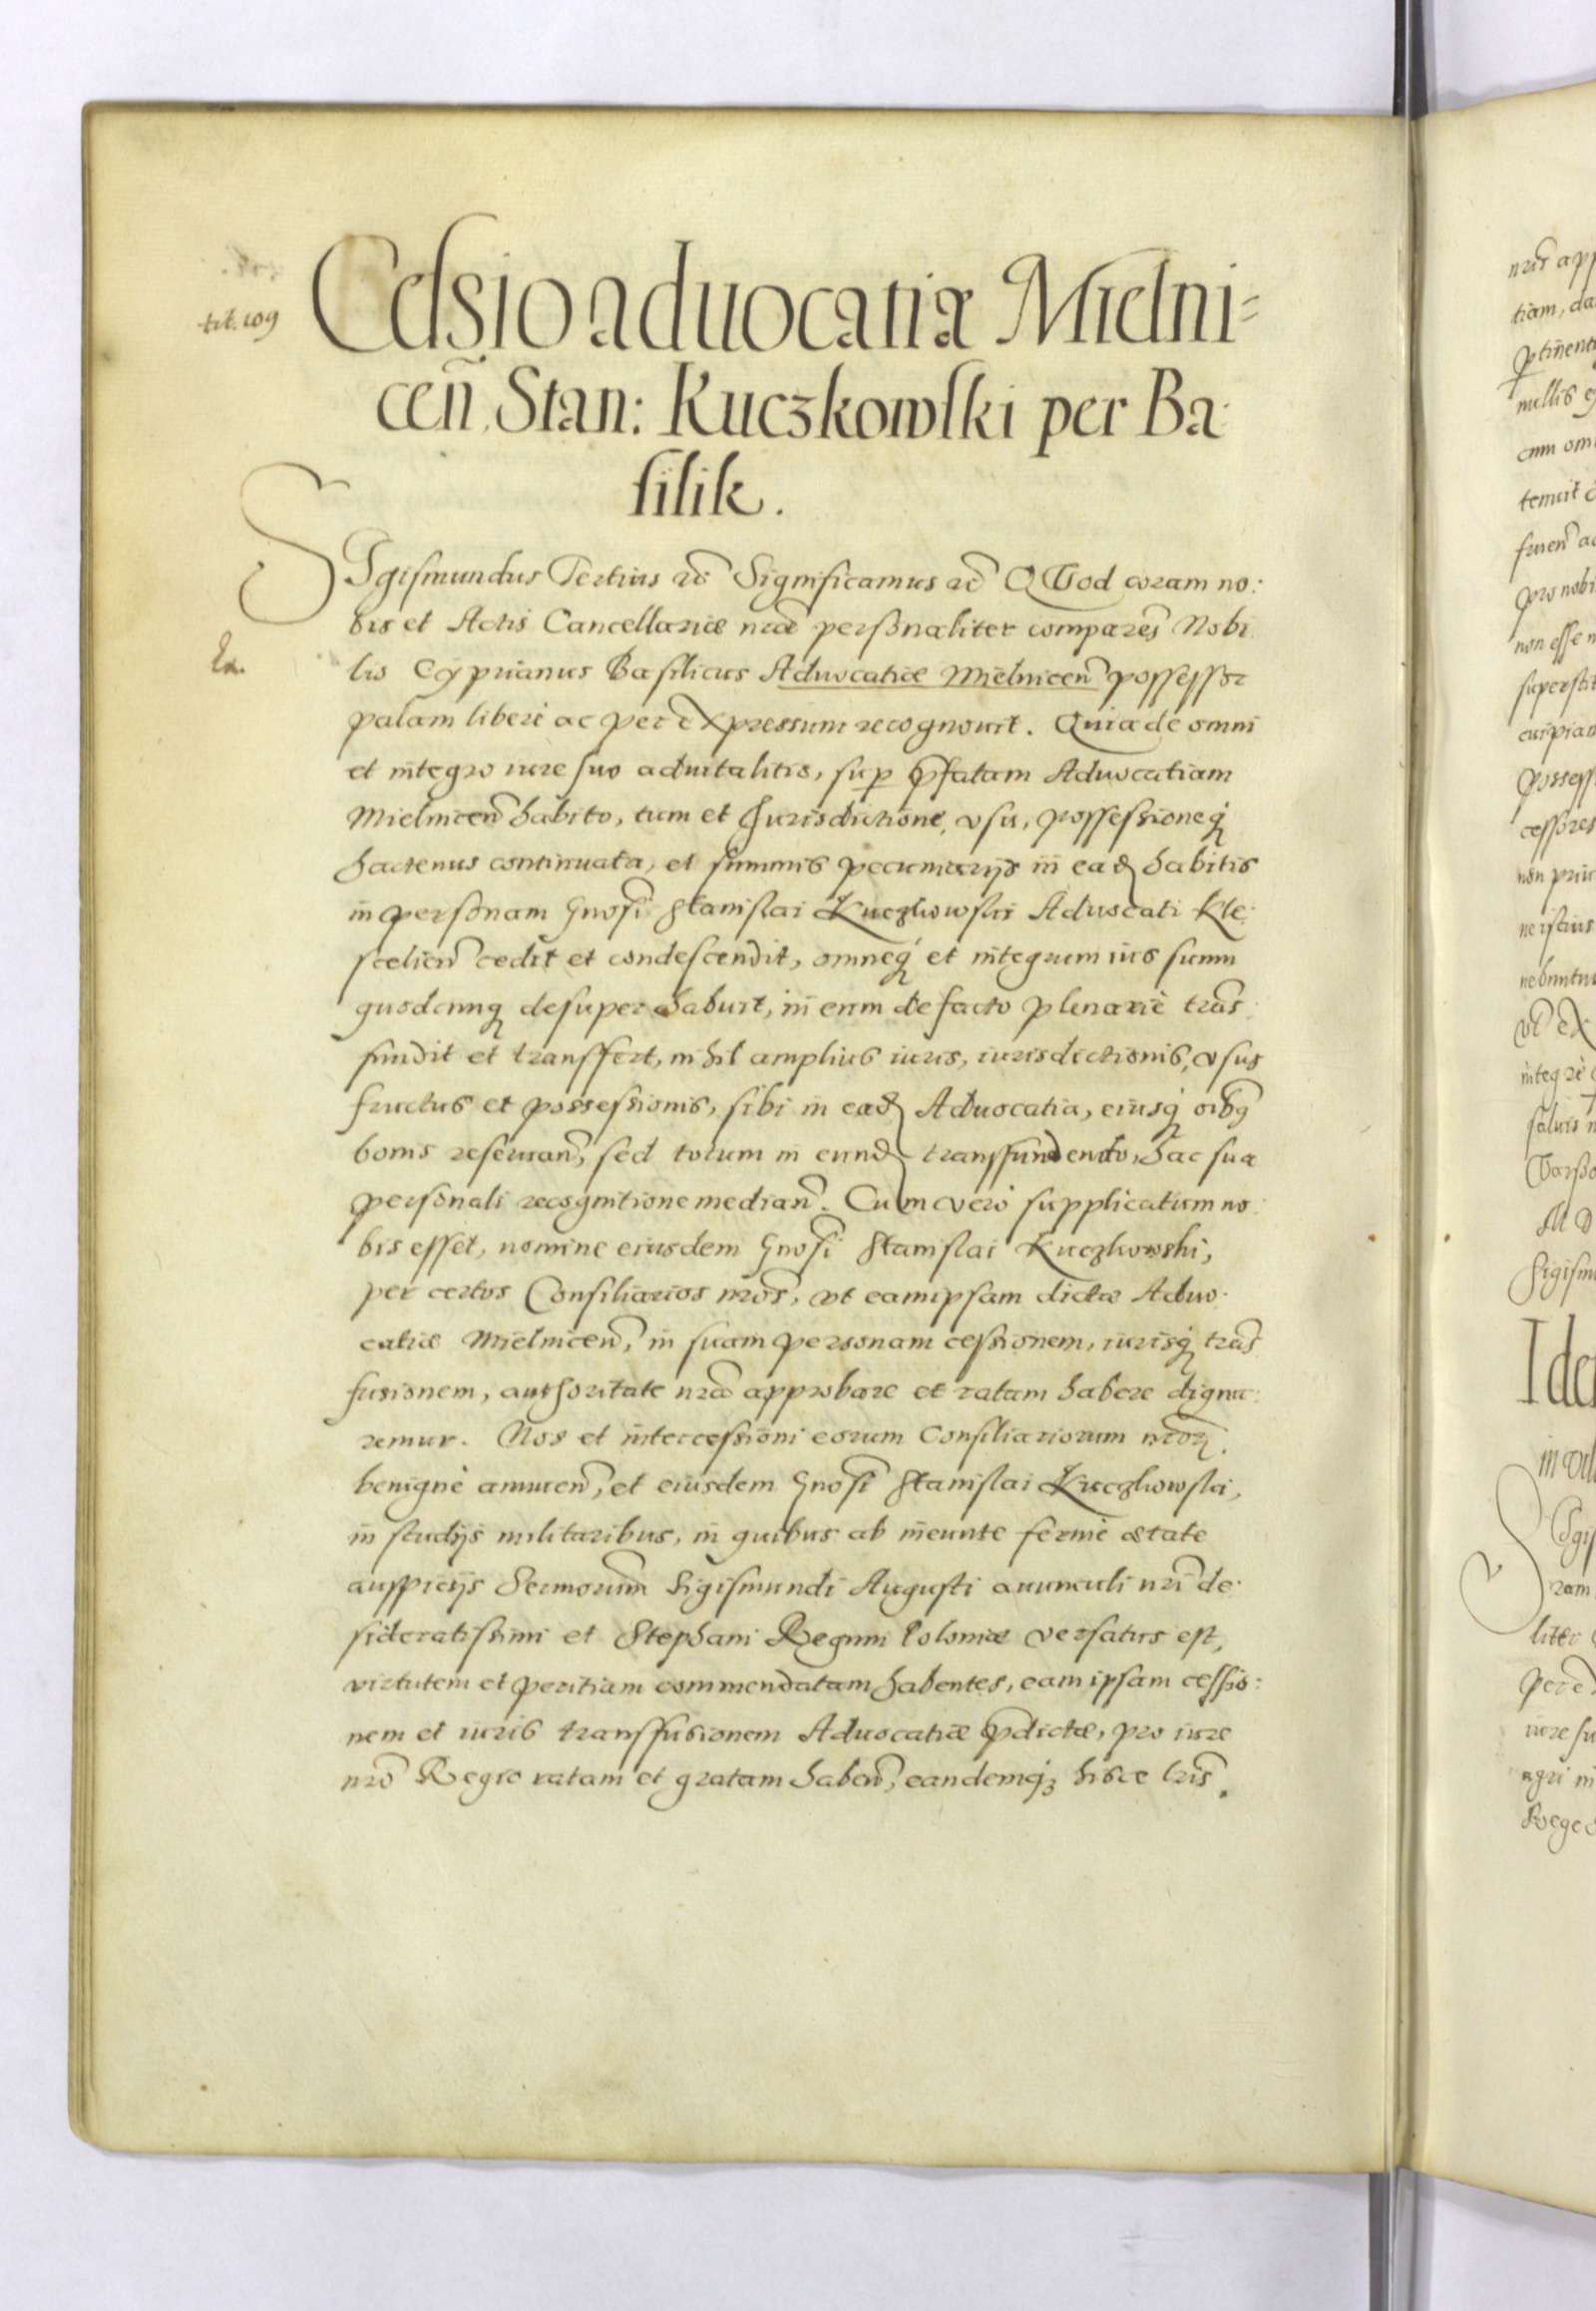 tit. 109
Cessio aduocatiæ Mielni=
ceñ Stan: Kuczkowski per Ba
silik.
SIgismundus Tertius rc̃ Significamus rc̃ QVod coram no:
bis et Actis Cancellariæ nr̃æ personaliter compareñ Nobi
lis Cyprianus Basilicus Aduocatiæ Mielniceñ possessor
palam liberè ac per expressum recognouit. Quia de omni
et integro iure suo aduitalitio, sup p̃fatam Aduocatiam
Mielniceñ habito, tum et Jurisdictione, vsu, possessioneq́
hactenus continuata, et summis pecuniarijs in ead habitis
in personam Gnosi Stanislai Kuczkowski Aduocati Kle:
sceliceñ cedit et condescendit, omneq́ et integrum ius suum
quodcunq desuper habuit, in eum de facto plenariè trãs
fundit et transffert, nihil amplius iuris, iurisdictionis, vsus
fructus et possessionis, sibi in ead Aduocatia, eiusq́ oibq
bonis reseruañ, sed totum in eund transfundendo, hac sua
personali recognitione mediañ. Cum verò supplicatum no
bis esset, nomine eiusdem Gnosi Stanislai Kuczkowski,
per certos Consiliarios nr̃os, vt eamipsam dictæ Aduo
catiæ Mielniceñ, in suam personam cessionem, iurisq́ trãs
fusionem, authoritate nr̃a approbare et ratam habere digna:
remur. Nos et intercessioni eorum Consiliariorum nr̃or.
benignè annueñ, et eiusdem Gnosi Stanislai Kuczkowski,
in studijs militaribus, in quibus ab ineunte fermè ætate
auspicijs Sermorum Sigismundi Augusti auunculi nr̃i de
sideratissimi et Stephani Regum Poloniæ versatus est,
virtutem et peritiam commendatam habentes, eam ipsam cessio:
nem et iuris transffusionem Aduocatiæ p̃dictæ, pro iure
nr̃o Regio ratam et gratam habeñ, eandemq́; hisce lr̃is.